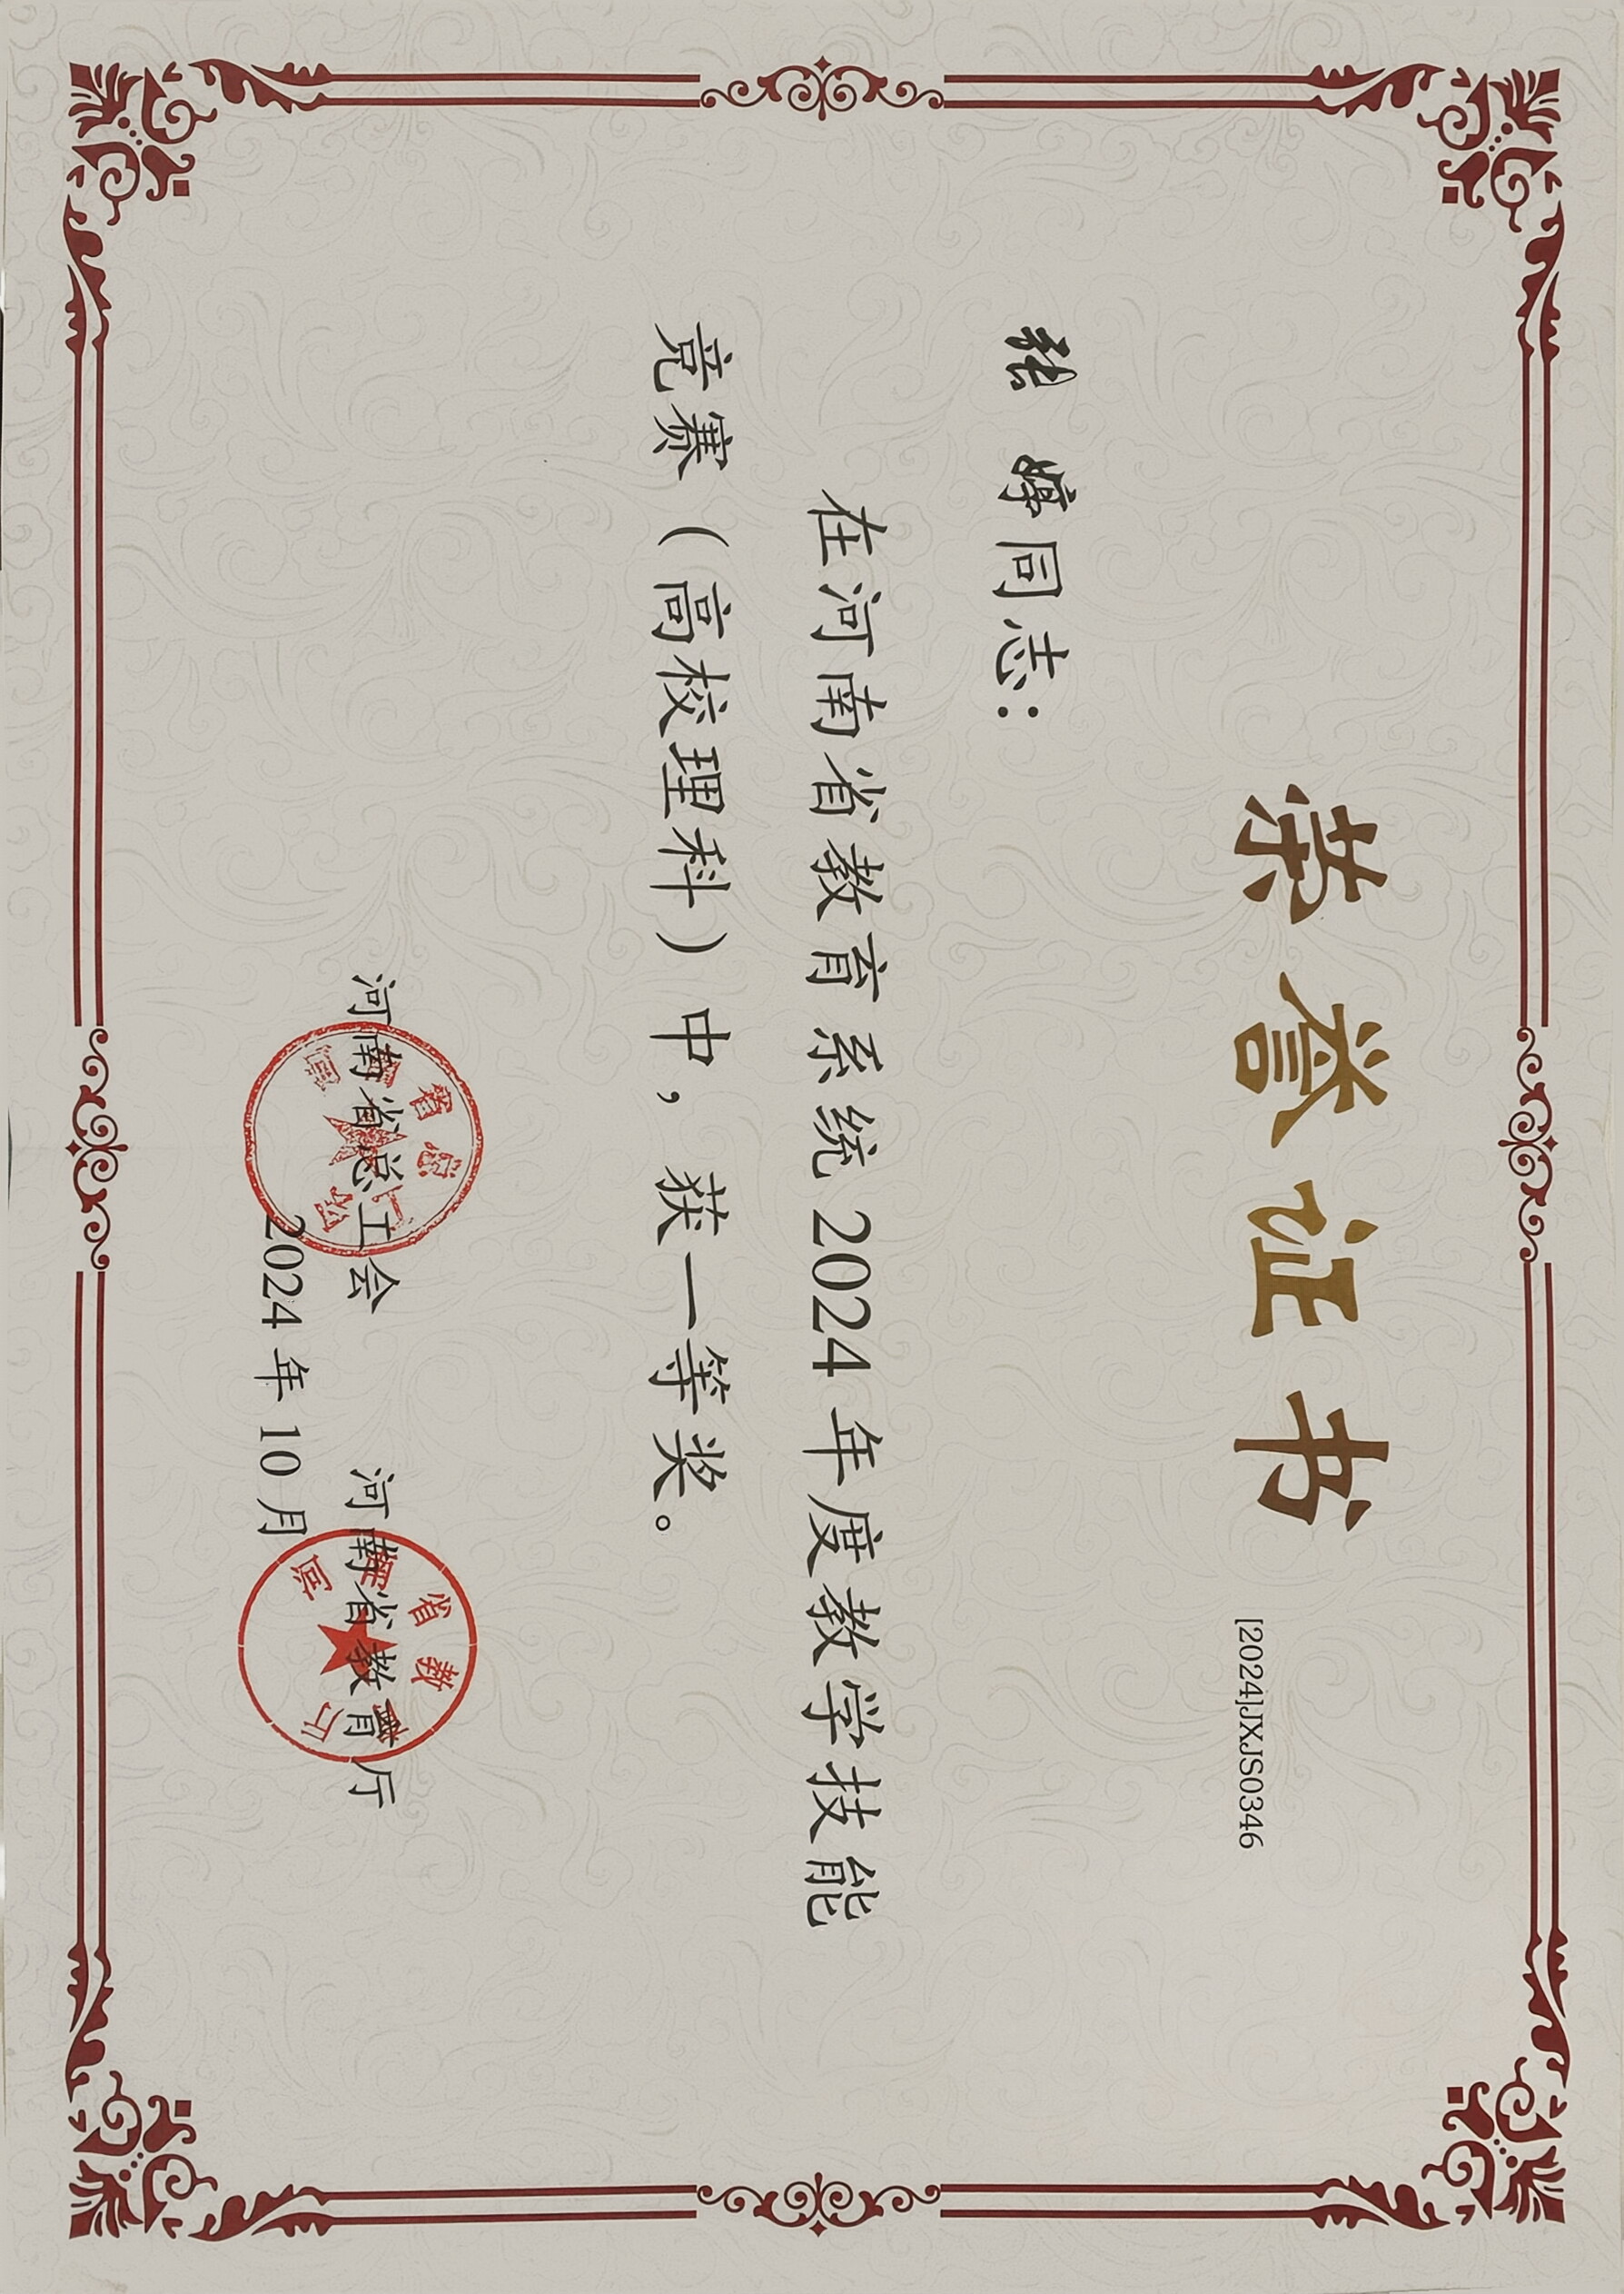 荣誉证书
[2024]JXJS0346
张 婷同志：
在河南省教育系统2024年度教学技能
竞赛（高校理科）中，获一等奖。
河南省总工会 河南省教育厅
2024年10月